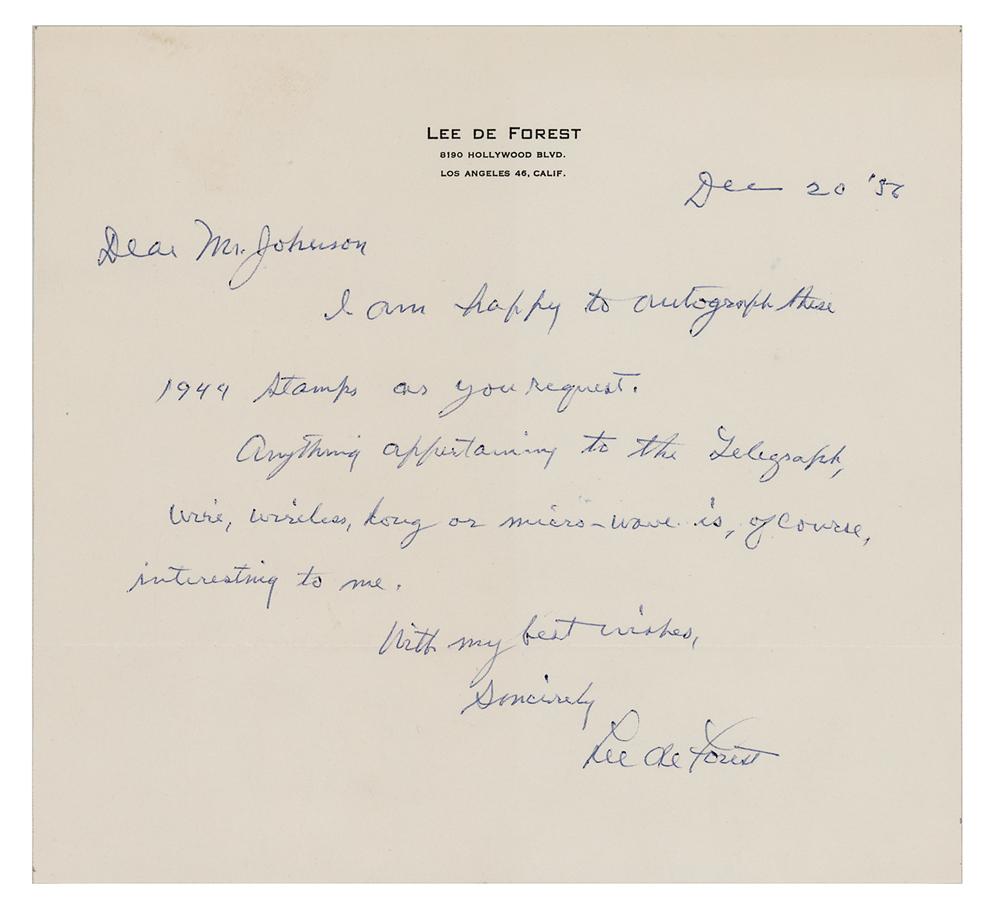 LEE DE FOREST
8190 HOLLYWOOD BLVD.
LOS ANGELES 46, CALIF.
Dec 20 '56
Dear Mr. Johnson
I am happy to autograph these
1944 Stamps as you request.
Anything appertaining to the Telegraph,
wire, wireless, long or micro-wave is, of course,
interesting to me.
With my best wishes,
Sincirely
Lee de Forest